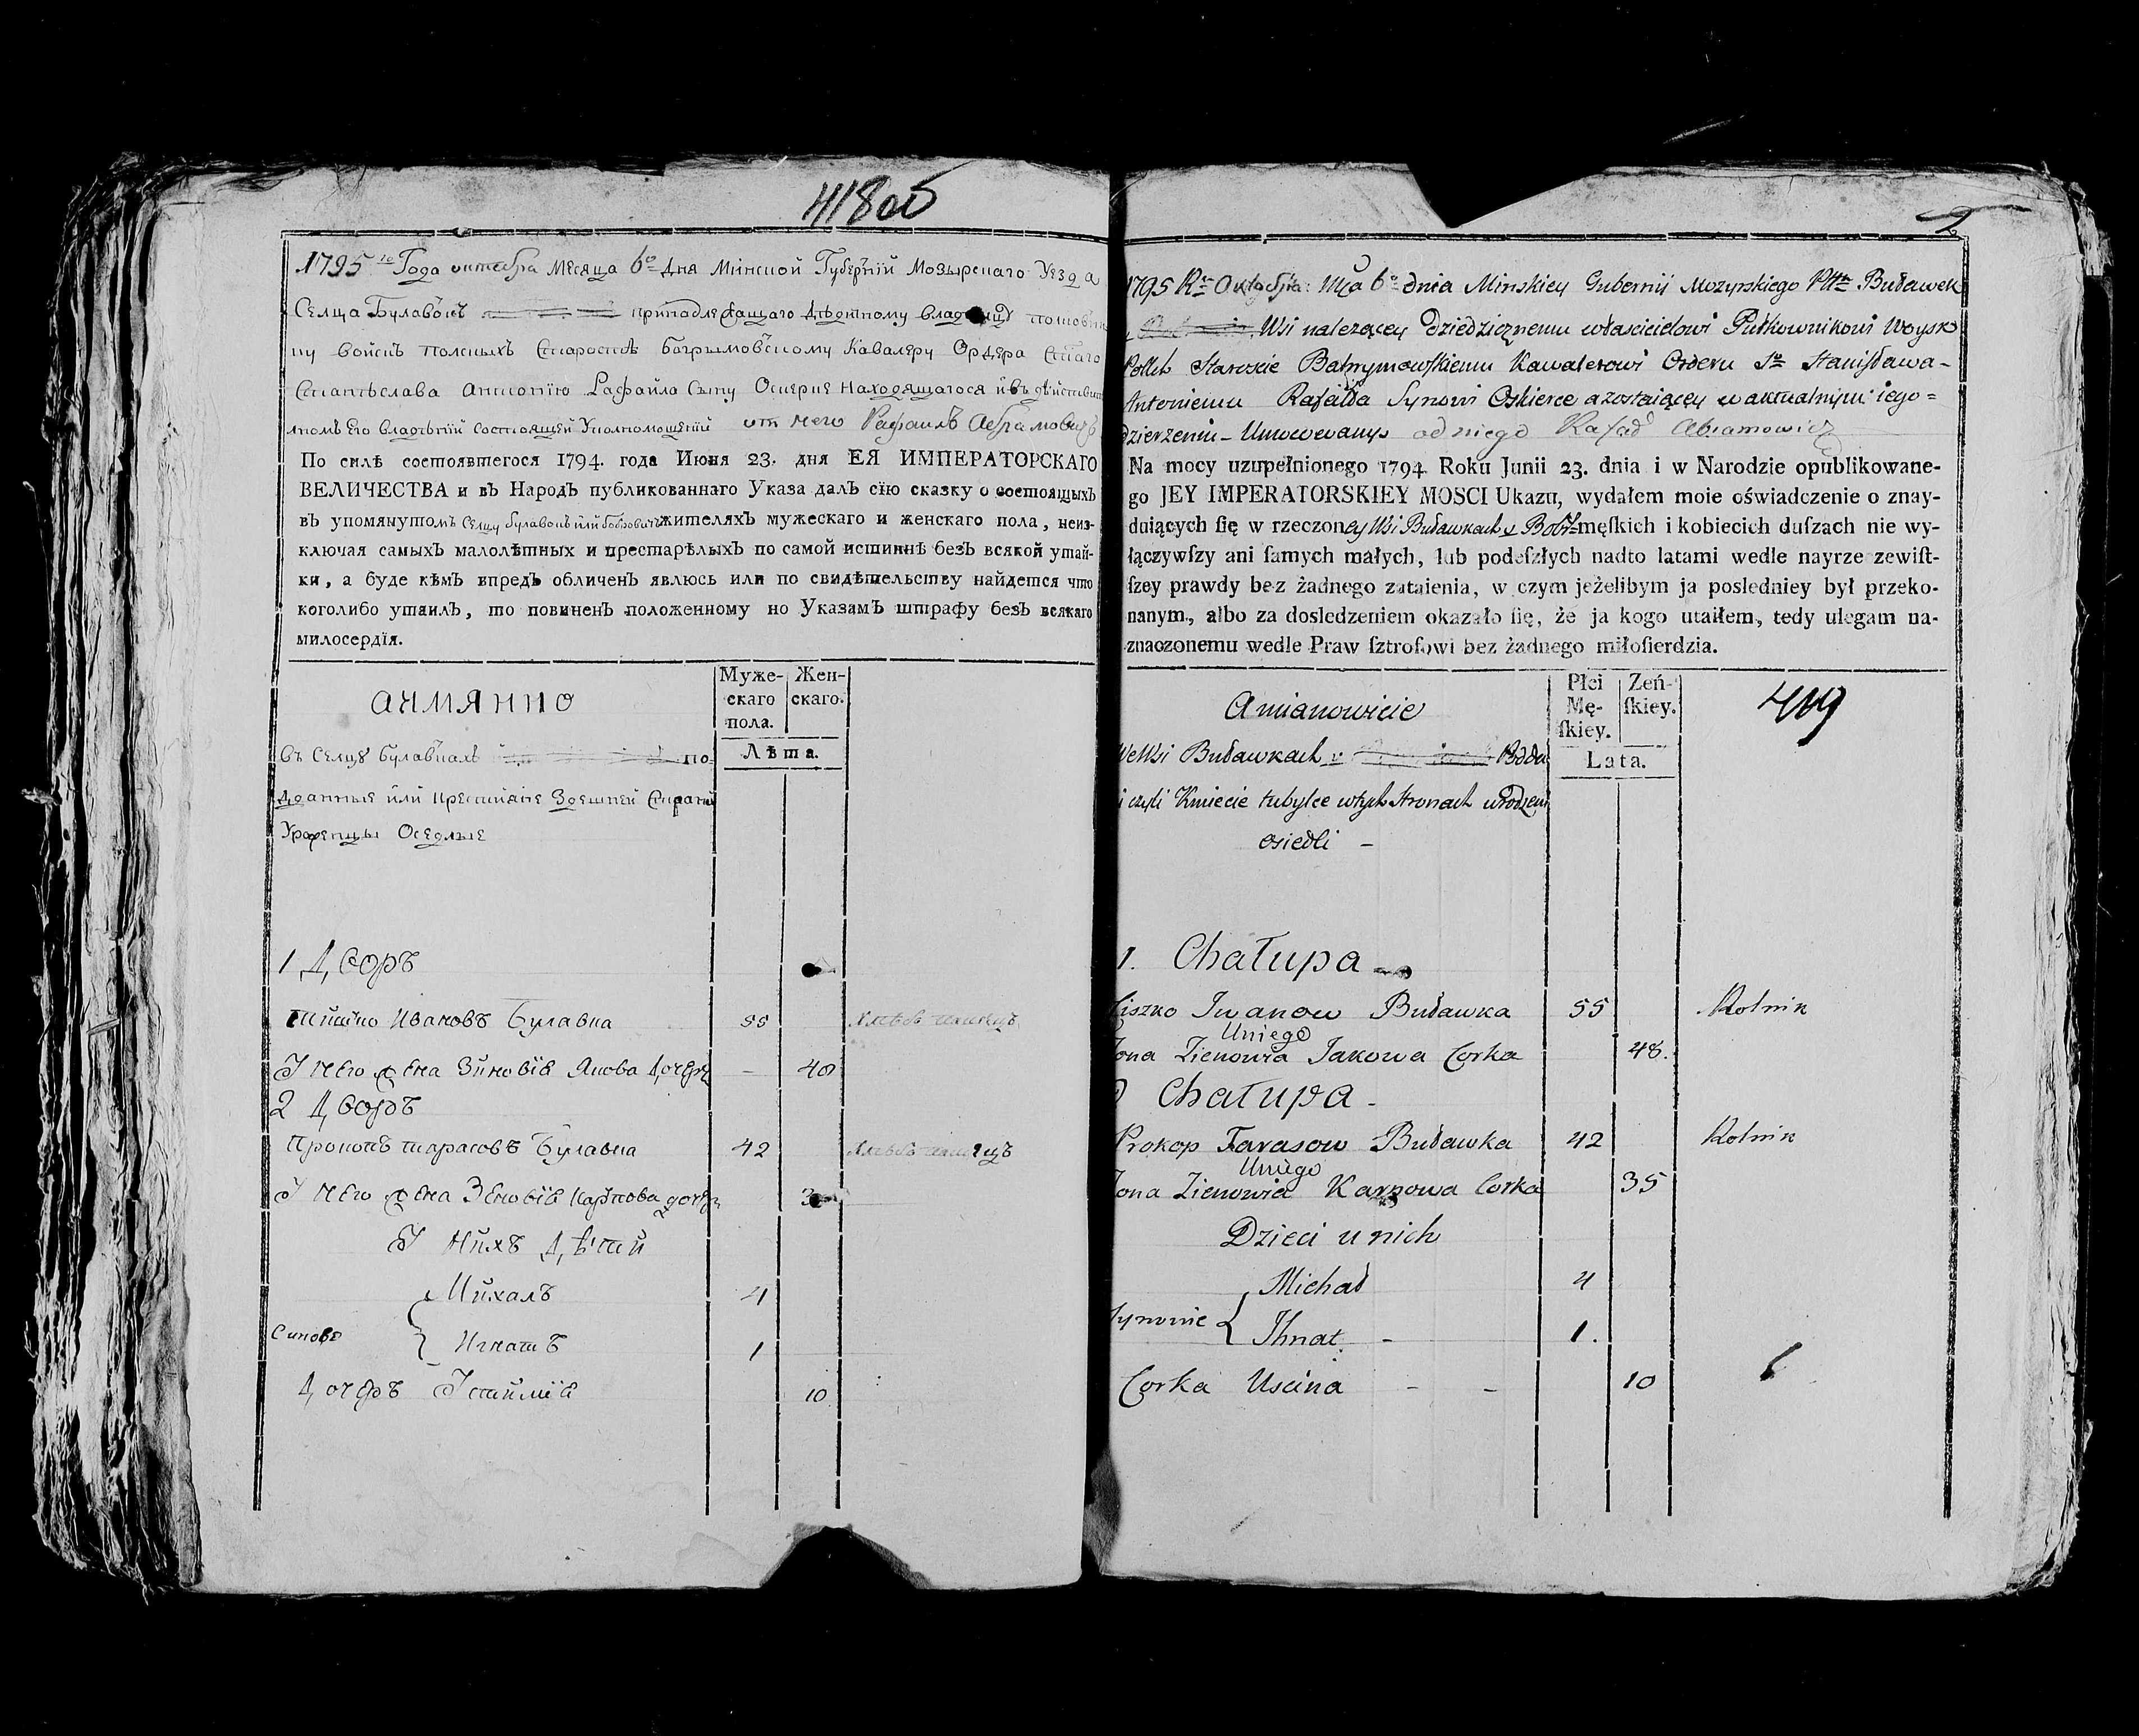 418об
1795 го Года октебра месяца 6го дня Минской Губерний Мозырскаго уезда
Селца Булавокъ приподлежащаго дѣдичному владелцу
ну войскъ полскихъ Старостѣ Богрымовскому Кавалеру Ордера Стаго
Станѣслава Антонію Рафайла Сыну Оскерке находящагося й въ дѣйствит
лномъ его владѣнїй состоящей Уполномощенїй от него Рафаилъ Абрамовичъ
По силѣ состоявтегося 1794. года Июня 23. дня ЕЯ ИМПЕРАТОРСКАГО
ВЕЛИЧЕСТВА и въ Народъ публикованнаго Указа далъ сїю сказку о состоящыхъ
въ упомянутомъ Селцу Булавокъ йлй Бобровичъ жителяхъ мужескаго и женскаго пола, неиз-
ключая самыхъ малолѣтныхъ и престарѣлыхъ по самой истиннѣ безъ всякой утай-
ки, а буде кѣмъ впредъ обличенъ явлюсь или по свидѣтельству найдется что
коголибо утаилъ, то повиненъ положенному но Указамъ штрафу безъ всякаго
милосердїя.
аимянно
Муже-
скаго
пола.
Жен-
скаго.
Лѣта.
въ Селцу Булавкахъ по
доанные йлй крестйане Здешней Старани
Урожецы Оседлые
1 Дворъ
Тишко Ивановъ Булавка 55 хлѣбъ пашецъ
У него жена Зйновїя Якова дочеръ – 48
2 Дворъ
Прокопъ тарасовъ Булавка 42 хлѣбъ пашецъ
У него жена Зеновїя Карпова дочеръ 3
У нйхъ дѣтей
Мйхалъ 4
Синове
Игнатъ 1
Дочеръ Устймїя 10
2
1795 Ru Oktobra: Mca 6o dnia Minskiey Gubernii Mozyrskiego Pttu Buławek
Wsi nalezącey dziedzicznemu włascicielowi Pułkownikowi Woysk
Polłch Staroscie Bahrymowſkiemu Kawalerowi Orderu So Staniſława-
Antoniemu Rafałła Synowi Oskierce a zostaiącey w aktualnym iego=
dzierzeniu – Umocowany od niego Rafał Abramowicz
Na mocy uzupełnionego 1794 Roku Junii 23. dnia i w Narodzie opublikowane-
go JEY IMPERATORSKIEY MOSCI Ukazu, wydałem moie oświadczenie o znay-
duiących ſię w rzeczoney Wsi Buławkach y Bobr męſkich i kobiecich duſzach nie wy-
łączywſzy ani ſamych małych, lub podeſzłych nadto latami wedle nayrze zewiſt-
ſzey prawdy bez żadnego zataienia, w czym jeżelibym ja posledniey był przeko-
nanym, albo za dosledzeniem okazało ſię, że ja kogo utaiłem, tedy ulegam na-
znaczonemu wedle Praw ſztrofowi bez żadnego miłoſierdzia.
Amianowicie
Płci
Mę-
ſkiey.
Zeń-
ſkiey.
Lata.
419
We Wsi Buławkach Podda
i czyli Kmiecie tubylce w tych Stronach urodzeni
osiedli –
1. Chałupa
Ciszko Iwanow Buławka 55 Rolnik
U niego
Zona Zienowia Jakowa Corka 48.
Chałupa –
Prokop Tarasow Buławka 42 Rolnik
U niego
Zona Zienowia Karpowa Corka 35
Dzieci u nich
Michał 4
Synowie
Ihnat. – 1.
Corka Uscina – – 10